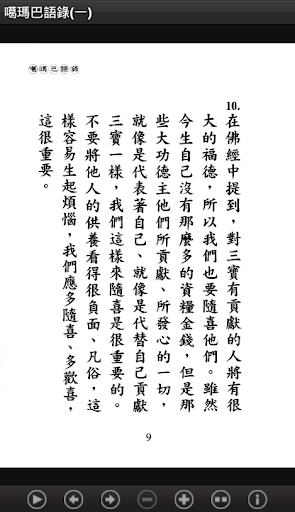 噶瑪巴語錄(一)
噶瑪巴語錄
10.
在佛經中提到，對三寶有貢獻的人將有很
大的福德，所以我們也要隨喜他們。雖然
今生自己沒有那麼多的資糧金錢，但是那
些大功德主他們所貢獻、所發心的一切，
就像是代表著自己、就像是代替自己貢獻
三寶一樣，我們這樣來隨喜是很重要的。
不要將他人的供養看得很負面、凡俗，這
樣容易生起煩惱，我們應多隨喜、多歡喜，
這很重要。
9